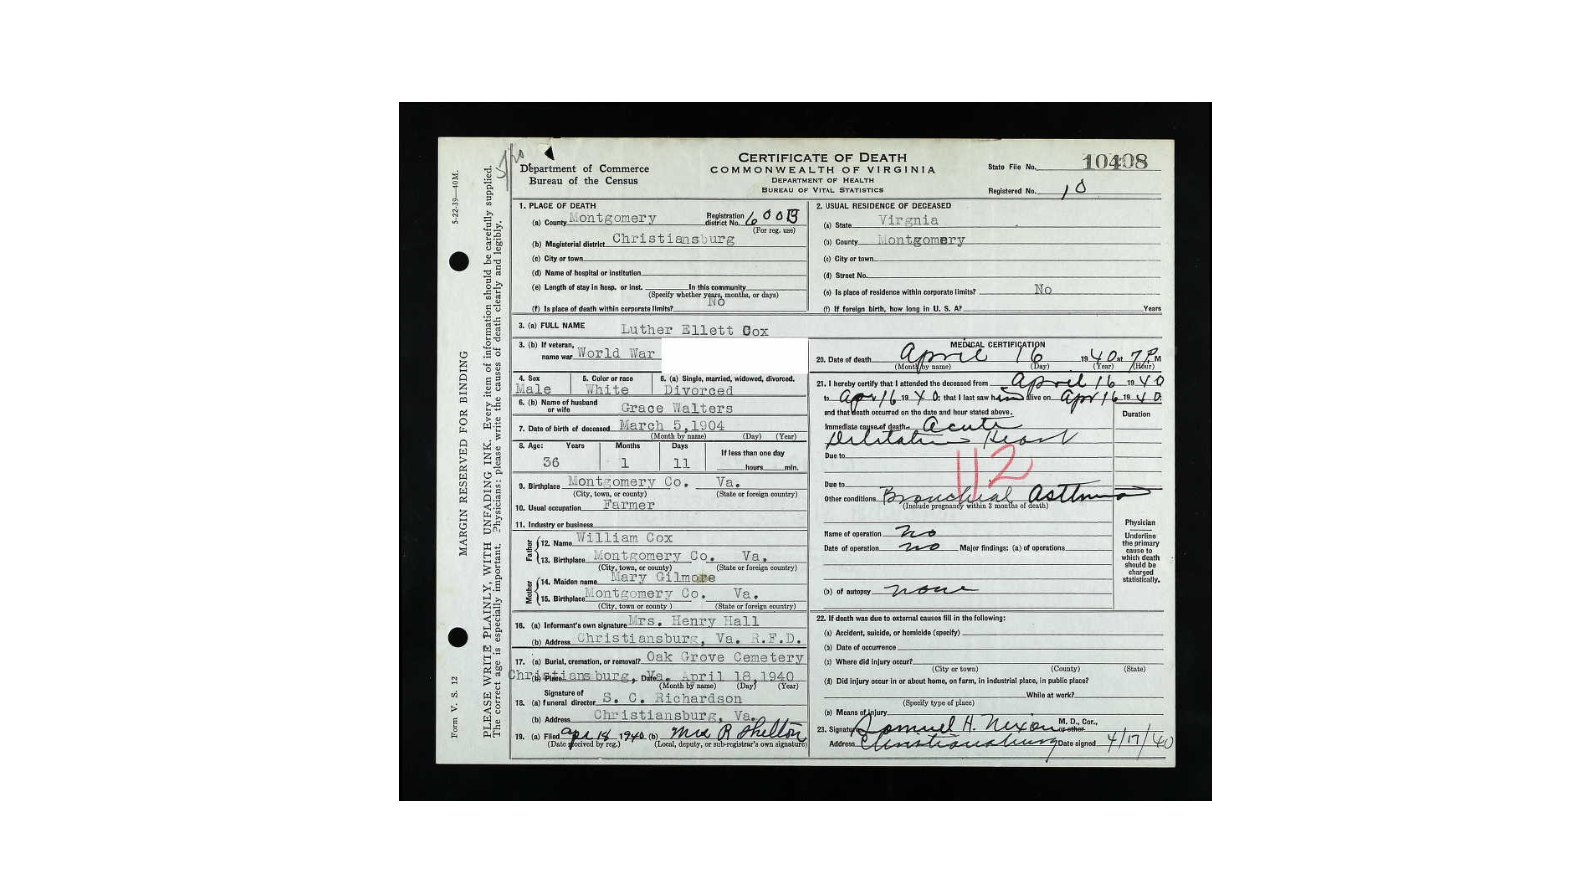 5-22-39—40M.
MARGIN RESERVED FOR BINDING
Form V. S. 12
PLEASE WRITE PLAINLY, WITH UNFADING INK. Every item of information should be carefully supplied.
The correct age is especially important. Physicians: please write the causes of death clearly and legibly.
Department of Commerce
Bureau of the Census
CERTIFICATE OF DEATH
COMMONWEALTH OF VIRGINIA
DEPARTMENT OF HEALTH
BUREAU OF VITAL STATISTICS
State File No. 10408
Registered No. 10
1. PLACE OF DEATH
(a) County Montgomery Registration district No. 600B
(For reg. use)
(b) Magisterial district Christiansburg
(c) City or town
(d) Name of hospital or institution
(e) Length of stay in hosp. or inst. In this community
(Specify whether years, months, or days)
(f) Is place of death within corporate limits? No
2. USUAL RESIDENCE OF DECEASED
(a) State Virgnia
(b) County Montgomery
(c) City or town
(d) Street No.
(e) Is place of residence within corporate limits? No
(f) If foreign birth, how long in U. S. A? Years
3. (a) FULL NAME Luther Ellett Cox
3. (b) If veteran, name war World War
4. Sex 5. Color or race 6. (a) Single, married, widowed, divorced.
Male White Divorced
6. (b) Name of husband or wife Grace Walters
7. Date of birth of deceased March 5,1904
(Month by name) (Day) (Year)
8. Age: Years Months Days If less than one day
36 1 11 hours min.
9. Birthplace Montgomery Co. Va.
(City, town, or county) (State or foreign country)
10. Usual occupation Farmer
11. Industry or business
Father
12. Name William Cox
13. Birthplace Montgomery Co. Va.
(City, town, or county) (State or foreign country)
Mother
14. Maiden name Mary Gilmore
15. Birthplace Montgomery Co. Va.
(City, town or county) (State or foreign country)
16. (a) Informant's own signature Mrs. Henry Hall
(b) Address Christiansburg, Va. R.F.D.
17. (a) Burial, cremation, or removal? Oak Grove Cemetery
(b) Place Christiansburg, Va. Date April 18,1940
(Month by name) (Day) (Year)
18. (a) Signature of funeral director S. C. Richardson
(b) Address Christiansburg, Va.
19. (a) Filed Apr 18 1940 (b) Mrs R Shelton
(Date received by reg.) (Local, deputy, or sub-registrar's own signature)
MEDICAL CERTIFICATION
20. Date of death April 16 1940 at 7 P M
(Month by name) (Day) (Year) (Hour)
21. I hereby certify that I attended the deceased from April 16 1940
to Apr 16 1940; that I last saw him alive on Apr 16 1940
and that death occurred on the date and hour stated above. Duration
Immediate cause of death Acute
Dilitation Heart
Due to
112
Due to
Other conditions Bronchial Asthma
(Include pregnancy within 3 months of death)
Name of operation no
Date of operation no Major findings: (a) of operations
(b) of autopsy none
Physician
Underline the primary cause to which death should be charged statistically.
22. If death was due to external causes fill in the following:
(a) Accident, suicide, or homicide (specify)
(b) Date of occurrence
(c) Where did injury occur?
(City or town) (County) (State)
(d) Did injury occur in or about home, on farm, in industrial place, in public place?
While at work?
(Specify type of place)
(e) Means of injury
23. Signature Samuel H. Nixon M. D., Cor., or other
Address Christiansburg Date signed 4/17/40